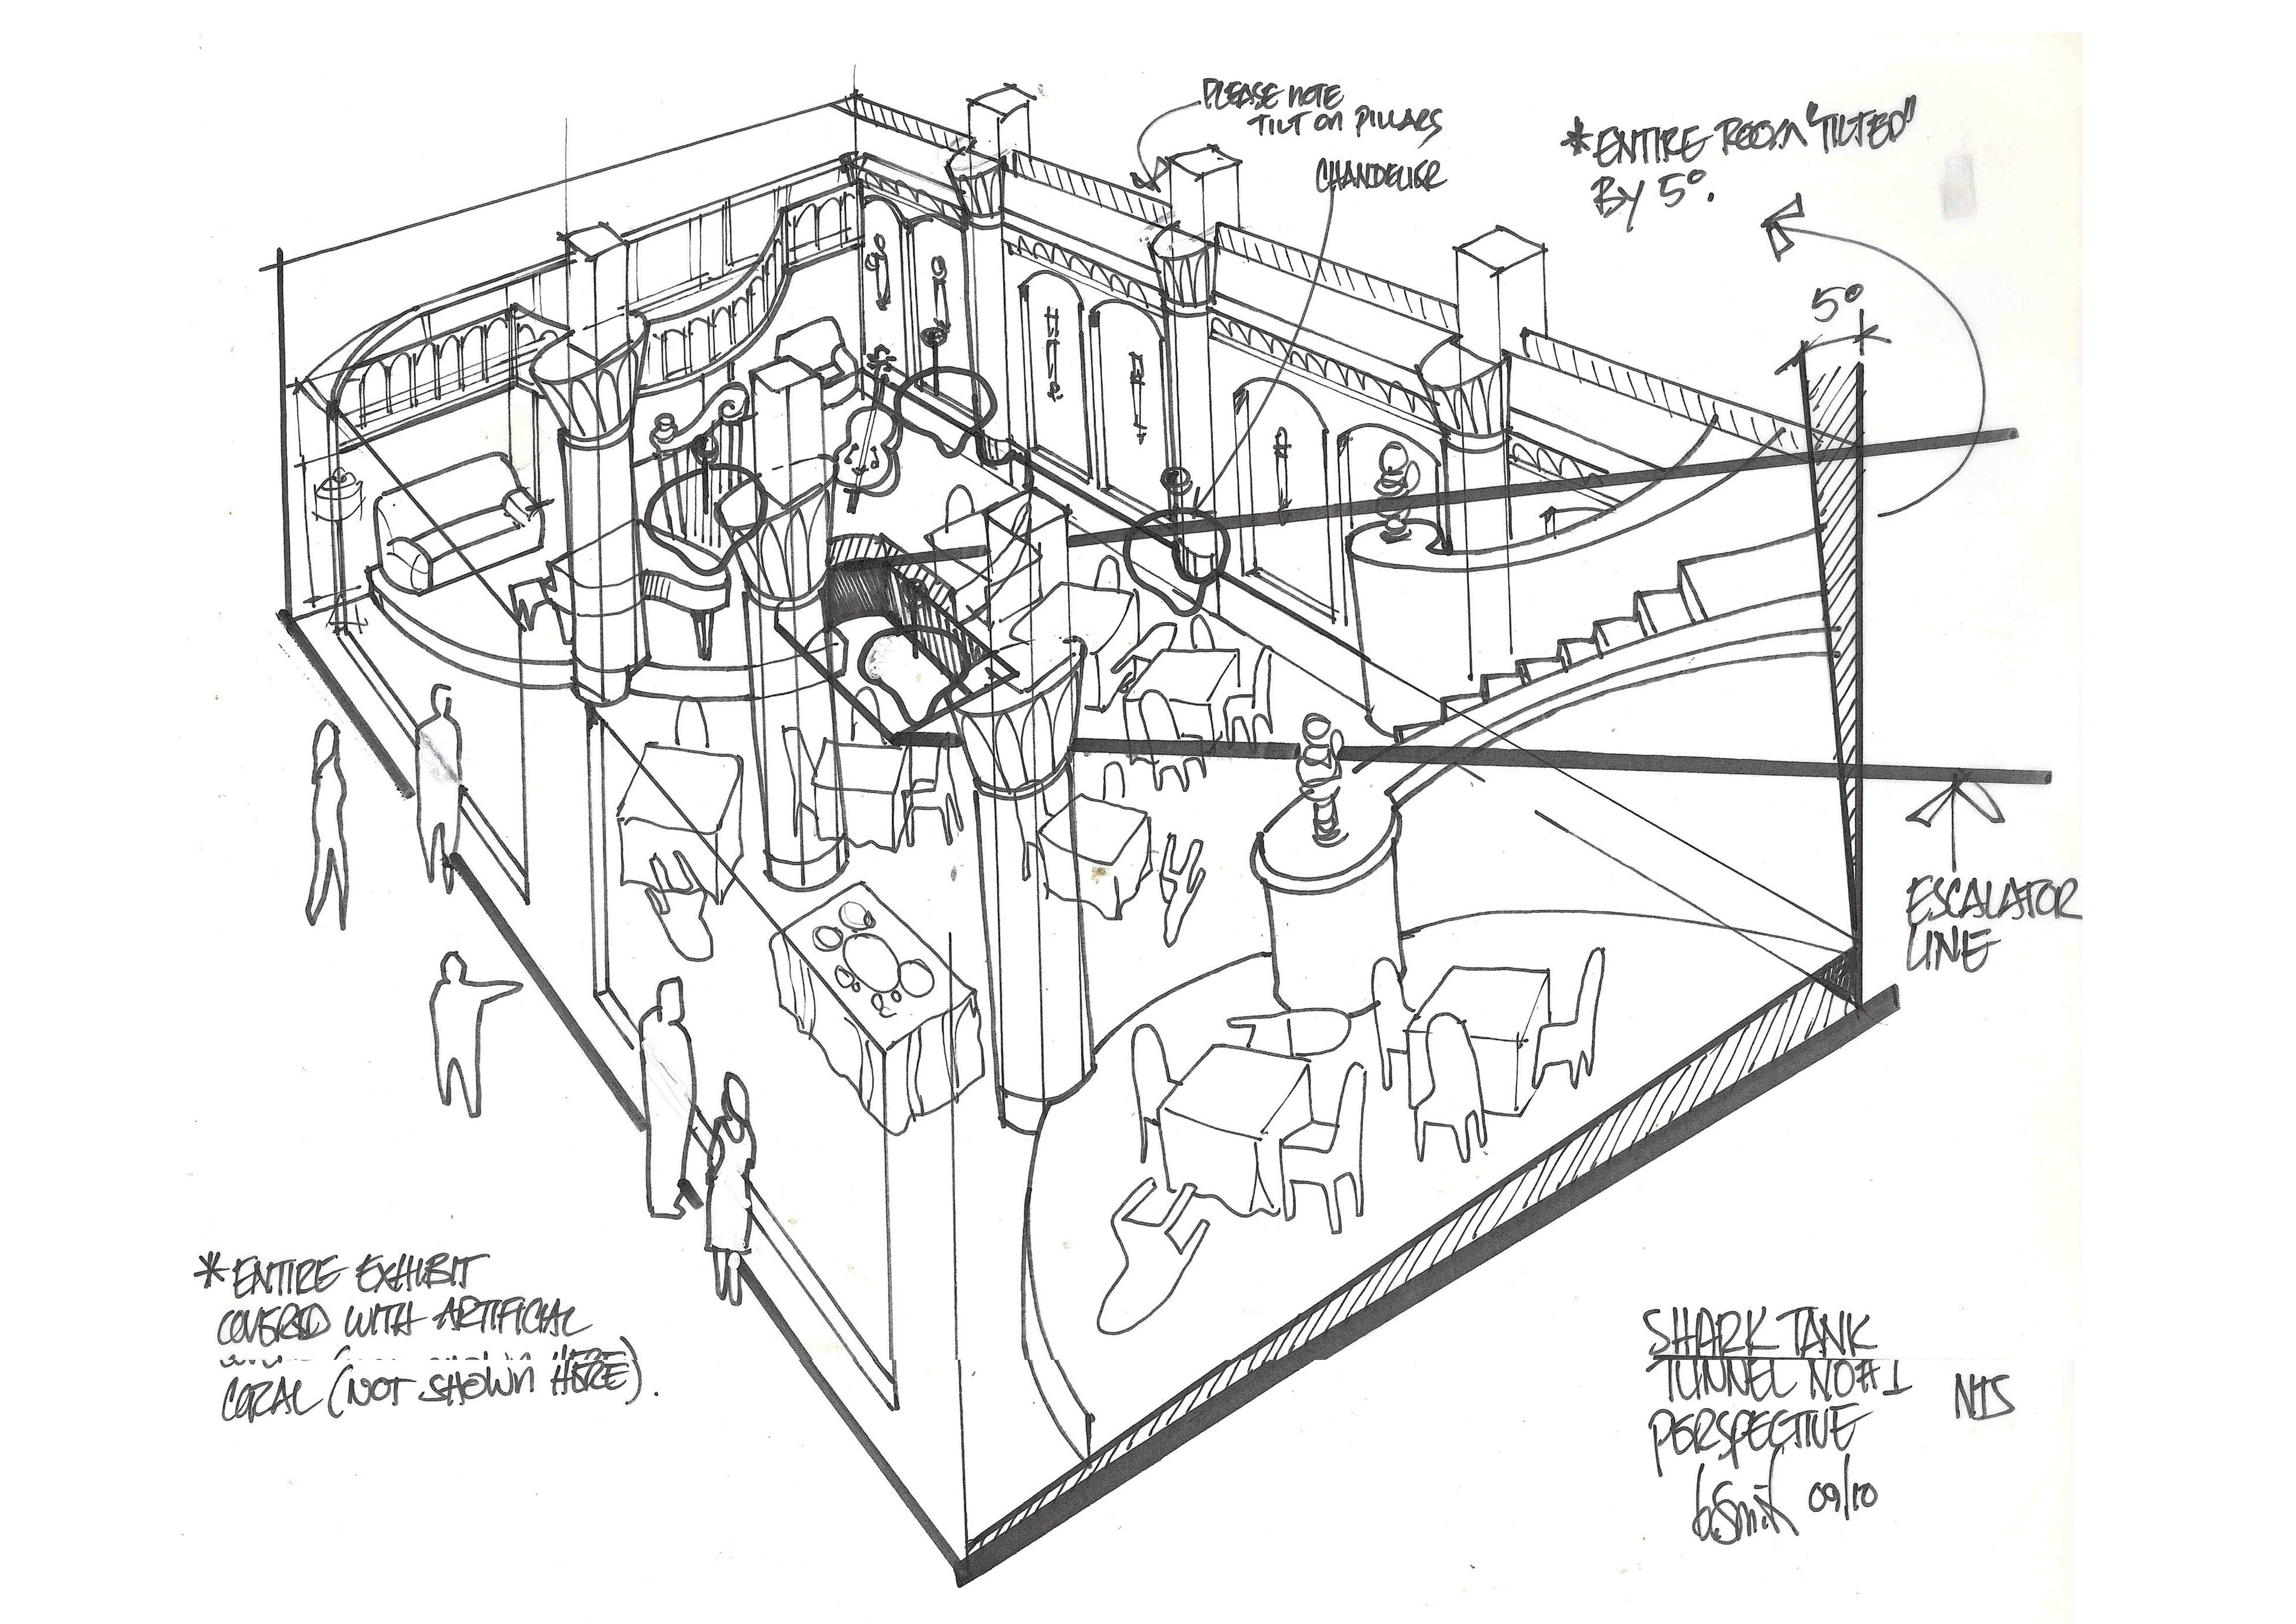 PLEASE NOTE
TILT ON PILLARS
CHANDELIER
*ENTIRE ROOM "TILTED"
BY 5°.
5°
ESCALATOR
LINE
*ENTIRE EXHIBIT
COVERED WITH ARTIFICIAL
CORAL (NOT SHOWN HERE).
SHARK TANK
TUNNEL NO#1
PERSPECTIVE
NTS
09/10